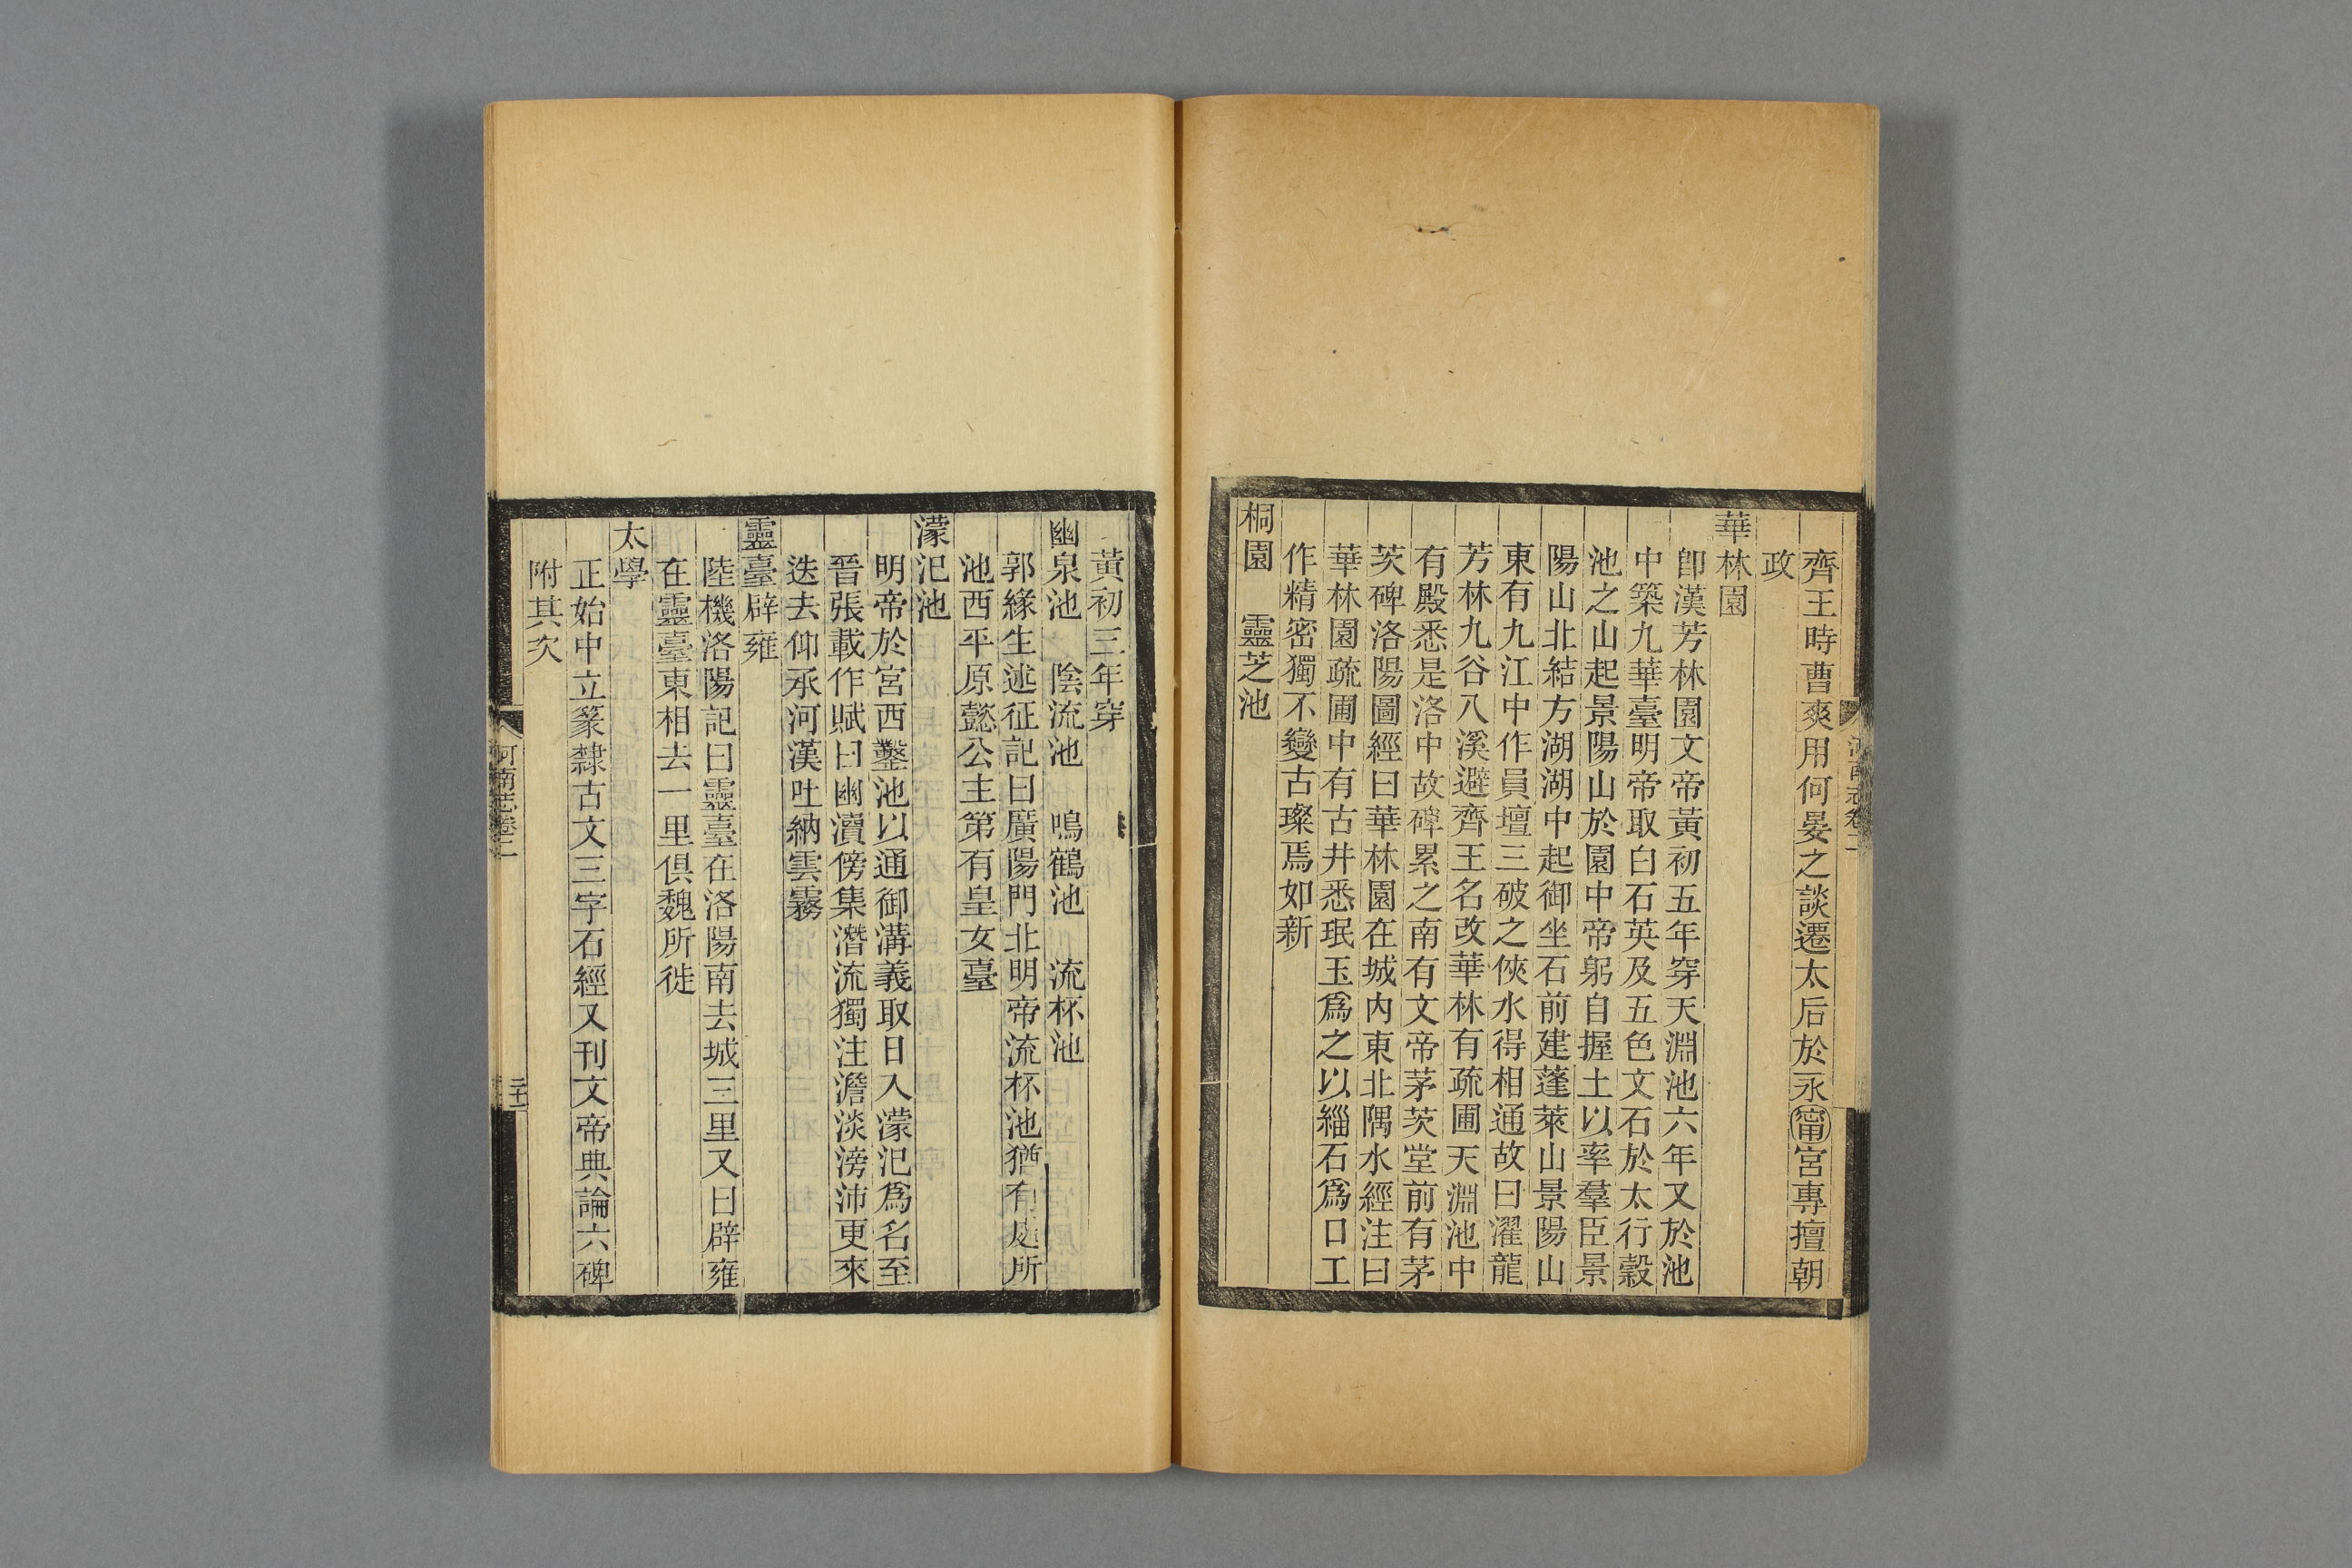 齊王時曹爽用何晏之談遷太后於永甯宮專擅朝
政
華林園
卽漢芳林園文帝黃初五年穿天淵池六年又於池
中築九華臺明帝取白石英及五色文石於太行穀
池之山起景陽山於園中帝躬自握土以率羣臣景
陽山北結方湖湖中起御坐石前建蓬萊山景陽山
東有九江中作員壇三破之俠水得相通故曰濯龍
芳林九谷八溪避齊王名改華林有疏圃天淵池中
有殿悉是洛中故碑累之南有文帝茅茨堂前有茅
茨碑洛陽圖經曰華林園在城內東北隅水經注曰
華林園疏圃中有古井悉珉玉爲之以緇石爲口工
作精密獨不變古璨焉如新
桐園　靈芝池
河南志卷二
黃初三年穿
幽泉池　陰流池　鳴鶴池　流杯池
郭緣生述征記曰廣陽門北明帝流杯池猶有處所
池西平原懿公主第有皇女臺
濛汜池
明帝於宮西鑿池以通御溝義取日入濛汜爲名至
晉張載作賦曰幽瀆傍集潛流獨注澹淡滂沛更來
迭去仰承河漢吐納雲霧
靈臺辟雍
陸機洛陽記曰靈臺在洛陽南去城三里又曰辟雍
在靈臺東相去一里俱魏所徙
太學
正始中立篆隸古文三字石經又刊文帝典論六碑
附其次
河南志卷二